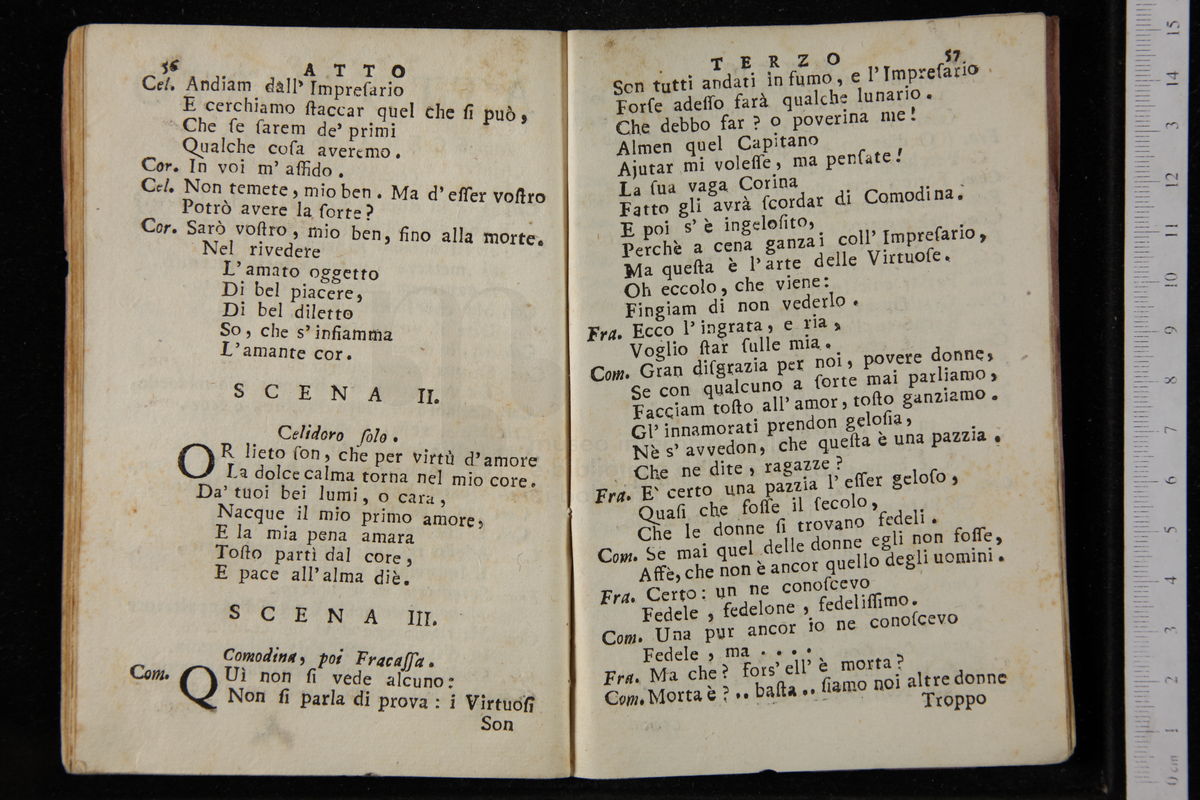 56
ATTO
Cel. Andiam dall' Impreſario
E cerchiamo ſtaccar quel che ſi può,
Che ſe ſarem de' primi
Qualche coſa averemo.
Cor. In voi m' affido.
Cel. Non temete, mio ben. Ma d' eſſer voſtro
Potrò avere la ſorte?
Cor. Sarò voſtro, mio ben, fino alla morte.
Nel rivedere
L' amato oggetto
Di bel piacere,
Di bel diletto
So, che s' infiamma
L' amante cor.
SCENA II.
Celidoro ſolo.
OR lieto ſon, che per virtù d' amore
La dolce calma torna nel mio core.
Da' tuoi bei lumi, o cara,
Nacque il mio primo amore,
E la mia pena amara
Toſto partì dal core,
E pace all' alma diè.
SCENA III.
Comodina, poi Fracaſſa.
Com. QUì non ſi vede alcuno:
Non ſi parla di prova: i Virtuoſi
Son
TERZO
57
Son tutti andati in fumo, e l' Impreſario
Forſe adeſſo farà qualche lunario.
Che debbo far? o poverina me!
Almen quel Capitano
Ajutar mi voleſſe, ma penſate!
La ſua vaga Corina
Fatto gli avrà ſcordar di Comodina.
E poi s' è ingeloſito,
Perchè a cena ganzai coll' Impreſario,
Ma queſta è l' arte delle Virtuoſe.
Oh eccolo, che viene:
Fingiam di non vederlo.
Fra. Ecco l' ingrata, e ria,
Voglio ſtar ſulle mia.
Com. Gran diſgrazia per noi, povere donne,
Se con qualcuno a ſorte mai parliamo,
Facciam toſto all' amor, toſto ganziamo.
Gl' innamorati prendon geloſia,
Nè s' avvedon, che queſta è una pazzia.
Che ne dite, ragazze?
Fra. E' certo una pazzia l' eſſer geloſo,
Quaſi che foſſe il ſecolo,
Che le donne ſi trovano fedeli.
Com. Se mai quel delle donne egli non foſſe,
Affè, che non è ancor quello degli uomini.
Fra. Certo: un ne conoſcevo
Fedele, fedelone, fedeliſſimo.
Com. Una pur ancor io ne conoſcevo
Fedele, ma . . . .
Fra. Ma che? fors' ell' è morta?
Com. Morta è? .. baſta .. ſiamo noi altre donne
Troppo
0 cm 1 2 3 4 5 6 7 8 9 10 11 12 13 14 15